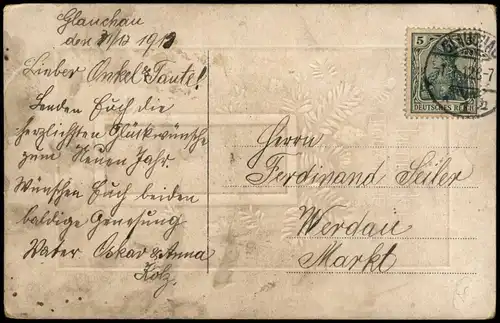 Glauchau
den 31/12 1913
Lieber Onkel & Tante!
Senden Euch die
herzlichsten Glückwünsche
zum Neuen Jahr.
Wünschen Euch beiden
baldige Genesung
Vater Oskar & Anna
Kolz.
Herrn
Ferdinand Seiler
Werdau
Markt
5
DEUTSCHES REICH